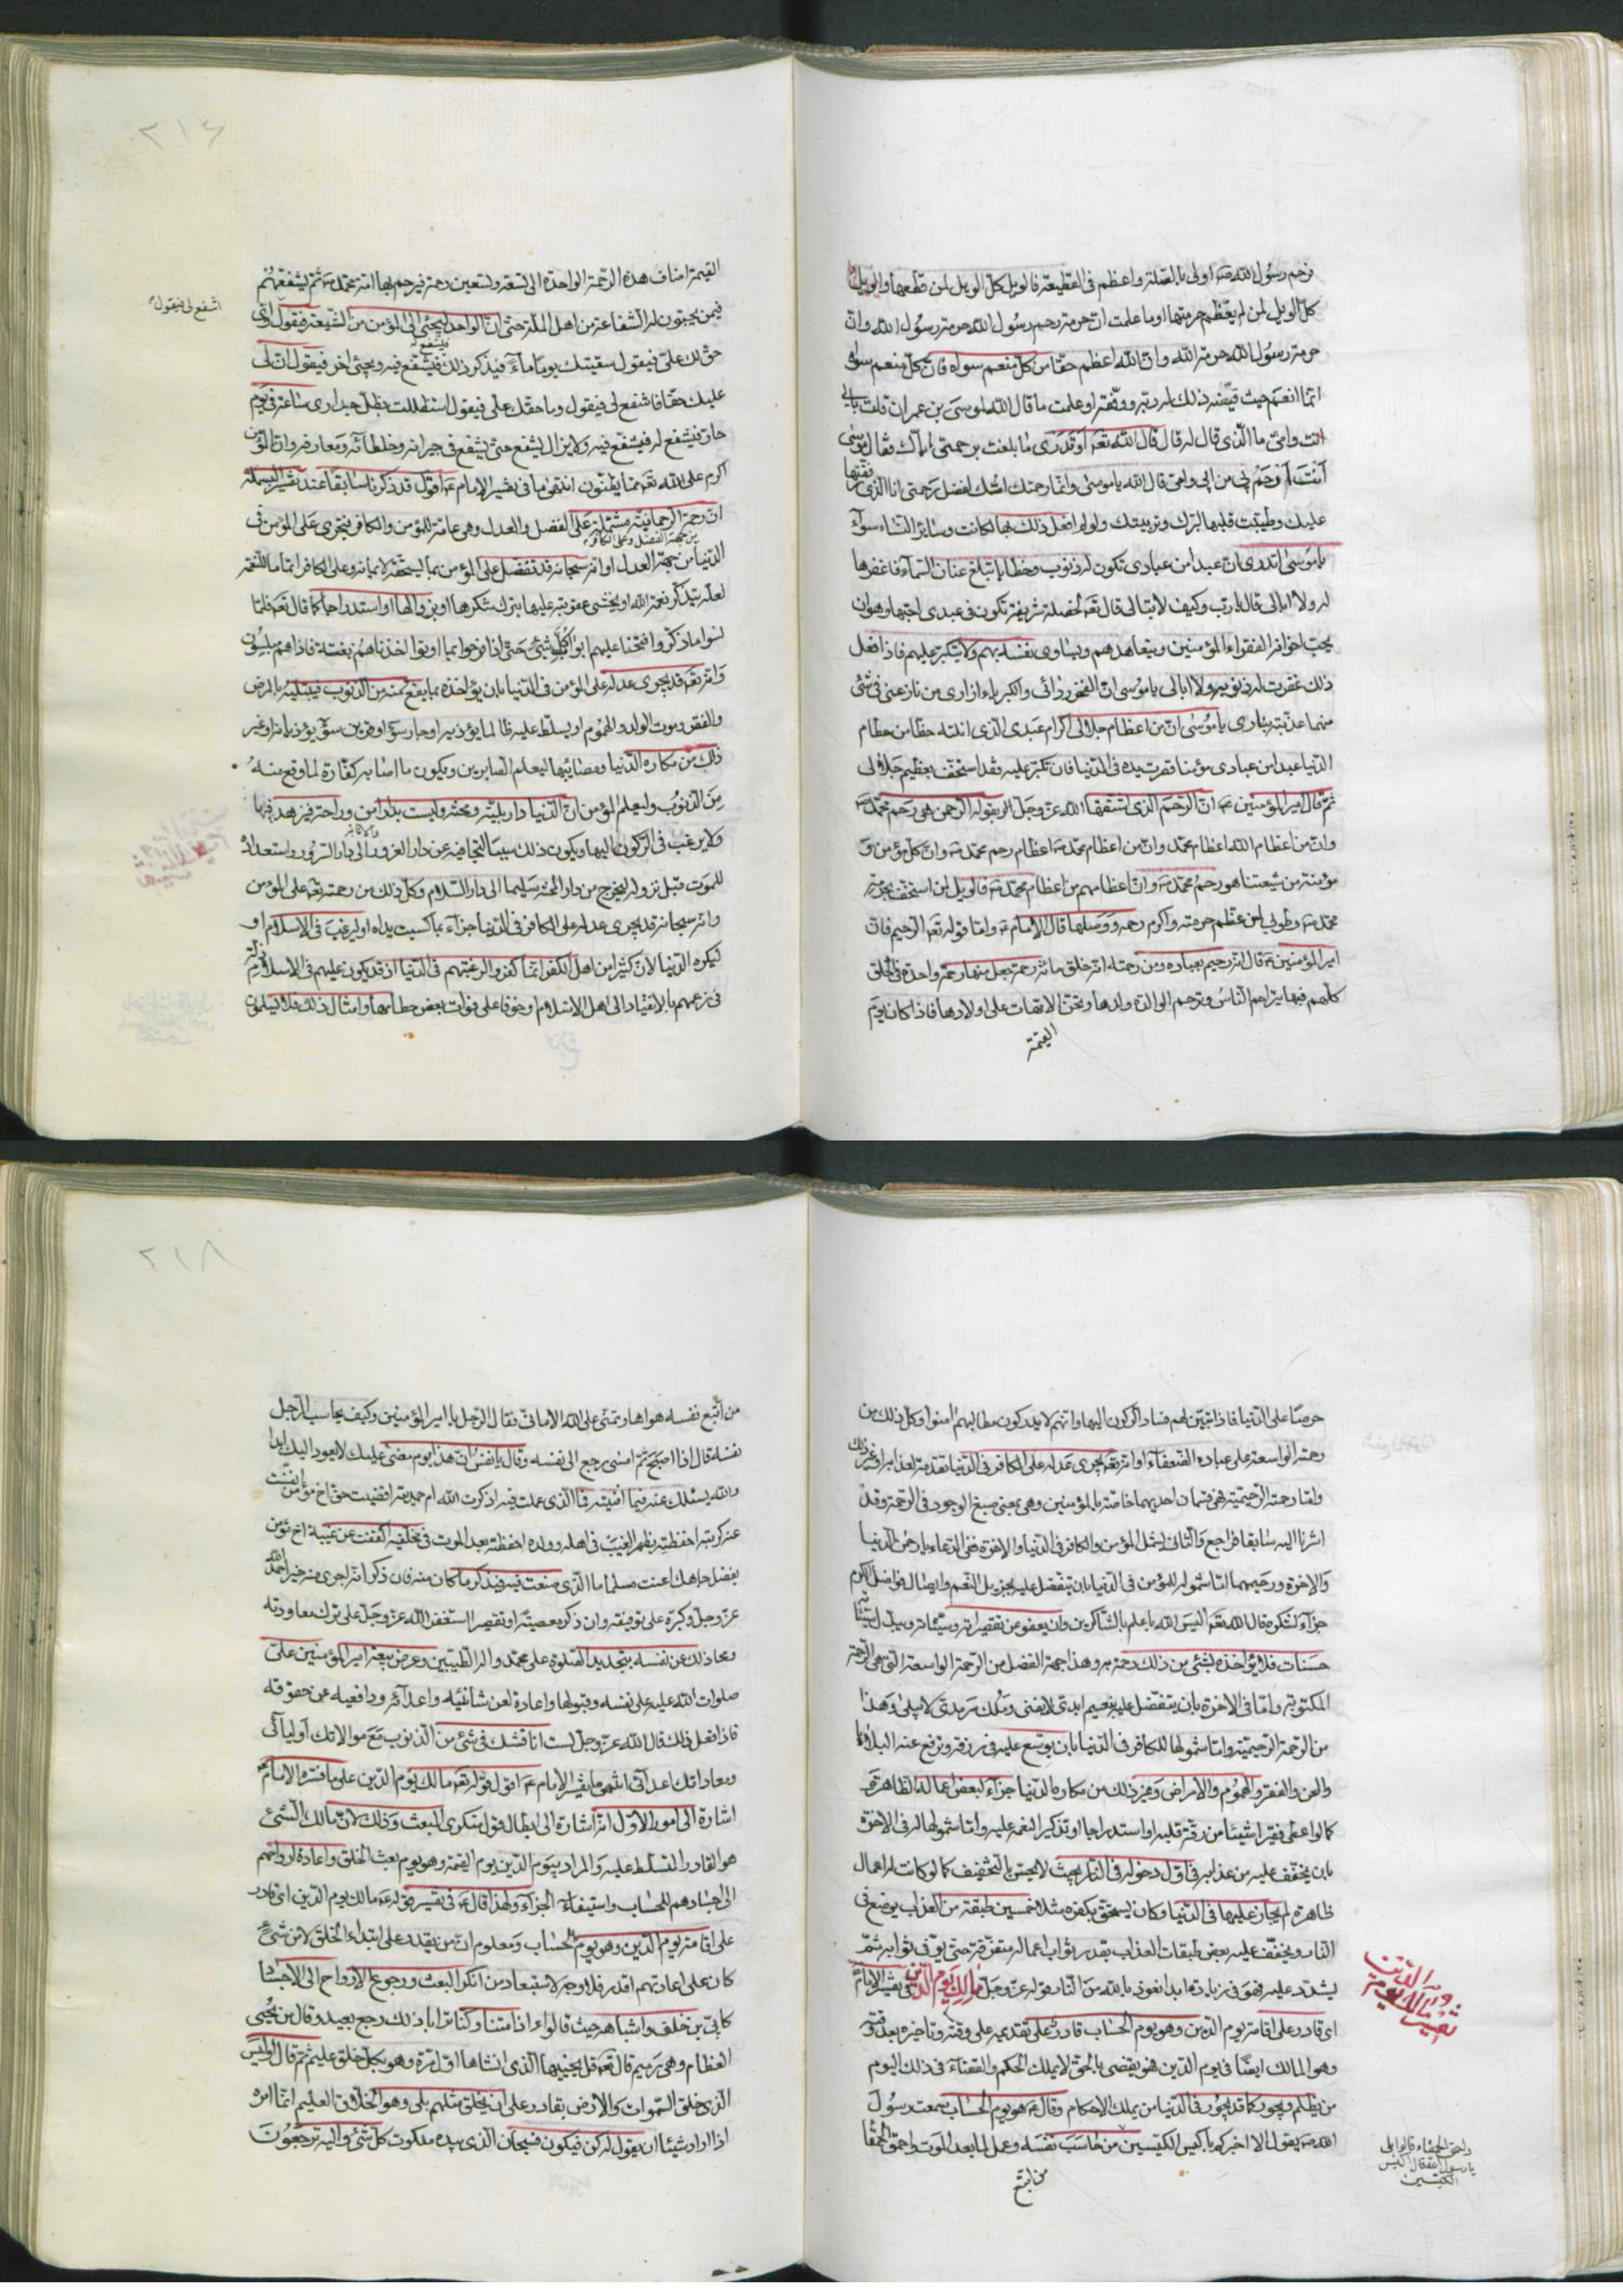 فرحم رسول الله صم اولى بالصلة واعظم فى القطيعة فالويل كل الويل لمن قطعها والويل
كل الويل لمن لم يعظم حرمتها او ما علمت ان حرمة رحم رسول الله حرمة رسول الله وان
حرمة رسول الله حرمة الله وان الله اعظم حقا من كل منعم سواه فان كل منعم سواه
انما انعم حيث قيضه ذلك له ربه ووفقه او علمت ما قال الله لموسى بن عمران قلت بابى
انت وامى ما الذى قال له قال قال الله تعم او تدرى ما بلغت برحمتى اياك فقال موسى
انت ارحم بى من ابى وامى قال الله يا موسى وانما رحمتك امك لفضل رحمتى انا الذى رققتها
عليك وطيبت قلبها لترك وتربيتك ولو لم افعل ذلك بها لكانت وساير النساء سوآء
يا موسى اتدرى ان عبدا من عبادى تكون له ذنوب وخطايا تبلغ عنان السمآء فاغفرها
له ولا ابالى قال يا رب وكيف لا تبالى قال تعم لخصلة شريفة تكون فى عبدى احبها وهو ان
يحب اخوانه الفقراء المؤمنين ويتعاهدهم ويساوى نفسه بهم ولا يتكبر عليهم فاذا فعل
ذلك غفرت له ذنوبه ولا ابالى يا موسى ان الفخر ردائى والكبرياء ازارى من نازعنى فى شئ
منهما عذبته بنارى يا موسى ان من اعظام جلالى اكرام عبدى الذى انلته حظا من حطام
الدنيا عبدا من عبادى مؤمنا قصرت يده فى الدنيا فان تكبر عليه فقد استخف بعظيم جلالى
ثم قال امير المؤمنين ع ان الرحم الذى اشتقها الله عز وجل بقوله الرحمن هى رحم محمد صم
وان من اعظام الله اعظام محمد وان من اعظام محمد صم اعظام رحم محمد صم وان كل مؤمن و
مؤمنة من شيعتنا هو رحم محمد صم وان اعظامهم من اعظام محمد صم فالويل لمن استخف بحرمة
محمد صم وطوبى لمن عظم حرمته واكرم رحمه ووصلها قال الامام ع واما قوله تعم الرحيم فان
امير المؤمنين ع قال انه رحيم بعباده ومن رحمته انه خلق مائة رحمة جعل منها رحمة واحدة فى الخلق
كلهم فبها يتراحم الناس وترحم الوالدة ولدها وتحنن الامهات على اولادها فاذا كان يوم
القيمة
٢١٤
القيمة اضاف هذه الرحمة الواحدة الى تسعة وتسعين رحمة فيرحم بها امة محمد صم ثم يشفعهم
فيمن يحبون له الشفاعة من اهل الملة حتى ان الواحد ليجئ الى المؤمن من الشيعة فيقول اى
اشفع لى فيقول
حق لك على فيقول سقيتك يوما مآء فيذكر ذلك فيشفع فيه ويجئ اخر فيقول ان لى
فيشفع له
عليك حقا فاشفع لى فيقول وما حقك على فيقول استظللت بظل جدارى ساعة فى يوم
حار فيشفع له فيشفع فيه ولا يزال يشفع حتى يشفع فى جيرانه وخلطائه ومعارفه وان المؤمن
اكرم على الله تعم مما يظنون انتهى ما فى تفسير الامام ع اقول قد ذكرنا سابقا عند تفسير البسملة
ان رحمة الرحمانية مشتملة على الفضل والعدل وهى عامة للمؤمن والكافر فتجرى على المؤمن فى
من جهة الفضل وعلى الكافر
الدنيا من جهة العدل او انه سبحانه قد تفضل على المؤمن بما يستحقه لايمانه وعلى الكافر اتماما للنعمة
لعله يتذكر نعمة الله او يخشى عقوبته عليها بترك شكرها او بزوالها او استدراجا كما قال تعم فلما
نسوا ما ذكروا به فتحنا عليهم ابواب كل شئ حتى اذا فرحوا بما اوتوا اخذناهم بغتة فاذا هم مبلسون
وانه تعم قد يجرى عدله على المؤمن فى الدنيا بان يؤاخذه بما يقع منه من الذنوب فيبتليه بالمرض
والفقر وموت الولد والهموم او يسلط عليه ظالما يؤذيه او جار سوء او قرين سوء يؤذيانه او غير
ذلك من مكاره الدنيا ومصائبها ليعلم الصابرين ويكون ما اصابه كفارة لما وقع منه
من الذنوب وليعلم المؤمن ان الدنيا دار بلية ومحنة وليست بدار امن وراحة فيزهد فيها
ولا يرغب فى الركون اليها ويكون ذلك سببا لتجافيه عن دار الغرور الى دار السرور واستعداد
للموت قبل نزوله ليخرج من دار المحنة سليما الى دار السلام وكل ذلك من رحمته تعم على المؤمن
وانه سبحانه قد يجرى عدله على الكافر فى الدنيا جزآء بما كسبت يداه او ليرغب فى الاسلام او
ليكره الدنيا لان كثيرا من اهل الكفر انما كفروا لرغبتهم فى الدنيا اذ قد يكون عليهم فى الاسلام
فى زعمهم بالانقياد الى اهل الاسلام وخوفا على فوات بعض حطامها وامثال ذلك فلا يسلمون
حرصا على الدنيا فاذا تبين لهم فساد الركون اليها وانهم لا يدركون مطالبهم امنوا وكل ذلك من
رحمته الواسعة على عباده الضعفآء او انه تعم يجرى عدله على الكافر فى الدنيا تقدمة لعذابه او غير ذلك
واما رحمته الرحيمية فهى قسمان احديهما خاصة بالمؤمنين وهى بمعنى صبغ الوجود فى الرحمة وقد
اشرنا اليه سابقا فراجع والثانى يشمل المؤمن والكافر فى الدنيا والاخرة ففى الدعاء يا رحمن الدنيا
والاخرة ورحيمهما اما شموله للمؤمن فى الدنيا بان يتفضل عليه بجزيل النعم وايصال فواضل الكرم
جزآء لشكره قال الله تعم اليس الله باعلم بالشاكرين وان يعفو عن تقصيراته وسيئاته ويبدل سيئاته
حسنات فلا يؤاخذه بشئ من ذلك رحمة به وهذا جهة الفضل من الرحمة الواسعة التى هى الرحمة
المكتوبة واما فى الاخرة بان يتفضل عليه بنعيم ابدى لا يفنى وملك سرمدى لا يبلى وهذا
من الرحمة الرحيمية واما شمولها للكافر فى الدنيا بان يوسع عليه فى رزقه وترفع عنه البلايا
والمحن والفقر والهموم والامراض وغير ذلك من مكاره الدنيا جزآء لبعض اعماله الظاهرة
كما لو اعطى فقيرا شيئا من رقة قلبه او استدراجا او تذكيرا لنعمه عليه واما شمولها له فى الاخرة
بان يخفف عليه من عذابه فى اول دخوله فى النار بحيث لا يحس بالتخفيف كما لو كانت له اعمال
ظاهرة لم يجاز عليها فى الدنيا وكان يستحق بكفره مثلا خمسين طبقة من العذاب يوضع فى
النار ويخفف عليه بعض طبقات العذاب بقدر ثواب اعماله متفرقة حتى يوفى ثوابه ثم
يشتد عليه فهو فى زيادة ابدا نعوذ بالله من النار قوله عز وجل مالك يوم الدين فى تفسير الامام
تفسير مالك يوم الدين
اى قادر على اقامة يوم الدين وهو يوم الحساب قادر على تقديمه على وقته وتاخيره بعد وقته
وهو المالك ايضا فى يوم الدين فهو يقضى بالحق لا يملك الحكم والقضآء فى ذلك اليوم
من يظلم ويجور كما قد يجور فى الدنيا من يملك الاحكام وقال ع هو يوم الحساب سمعت رسول
الله صم يقول الا اخبركم باكيس الكيسين من حاسب نفسه وعمل لما بعد الموت واحمق الحمقا
واحمق الحمقاء قالوا بلى
يا رسول الله قال اكيس
الكيسين
من اتبع
٢١٨
من اتبع نفسه هواها وتمنى على الله الامانى فقال الرجل يا امير المؤمنين وكيف يحاسب الرجل
نفسه قال اذا اصبح ثم امسى رجع الى نفسه وقال يا نفس ان هذا يوم مضى عليك لا يعود اليك ابدا
والله يسئلك عنه فيما افنيته فما الذى عملت فيه اذكرت الله ام حمدته اقضيت حق اخ مؤمن انفست
عنه كربته احفظته بظهر الغيب فى اهله وولده احفظته بعد الموت فى مخلفيه اكففت عن غيبة اخ مؤمن
بفضل جاهك اعنت مسلما ما الذى صنعت فيه فيذكر ما كان منه فان ذكر انه جرى منه خير حمد الله
عز وجل وكبره على توفيقه وان ذكر معصية او تقصيرا استغفر الله عز وجل على ترك معاودته
ومحا ذلك عن نفسه بتجديد الصلوة على محمد واله الطيبين وعرض بيعة امير المؤمنين على
صلوات الله عليه على نفسه وقبولها واعادة لعن شانئيه واعدآئه ودافعيه عن حقوقه
فاذا فعل ذلك قال الله عز وجل لست اناقشك فى شئ من الذنوب مع موالاتك اوليآئى
ومعاداتك اعدآئى انتهى ما بتفسير الامام ع اقول قوله تعم مالك يوم الدين على ما فسره الامام ع
اشارة الى امور الاول انه اشارة الى ابطال قول منكرى البعث وذلك لان مالك الشئ
هو القادر المتسلط عليه والمراد بيوم الدين يوم القيمة وهو يوم بعث الخلق واعادة ارواحهم
الى اجسادهم للحساب واستيفآء الجزآء ولهذا قال ع فى تفسير قوله ع مالك يوم الدين اى قادر
على اقامة يوم الدين وهو يوم الحساب ومعلوم ان من يقدر على ابتداء الخلق لا من شئ
كان على اعادتهم اقدر فلا وجه لاستبعاد من انكر البعث ورجوع الارواح الى الاجساد
كابى بن خلف واشباهه حيث قالوا ءاذا متنا وكنا ترابا ذلك رجع بعيد وقال من يحيى
العظام وهى رميم قال تعم قل يحييها الذى انشاها اول مرة وهو بكل خلق عليم ثم قال اوليس
الذى خلق السموات والارض بقادر على ان يخلق مثلهم بلى وهو الخلاق العليم انما امره
اذا اراد شيئا ان يقول له كن فيكون فسبحان الذى بيده ملكوت كل شئ واليه ترجعون